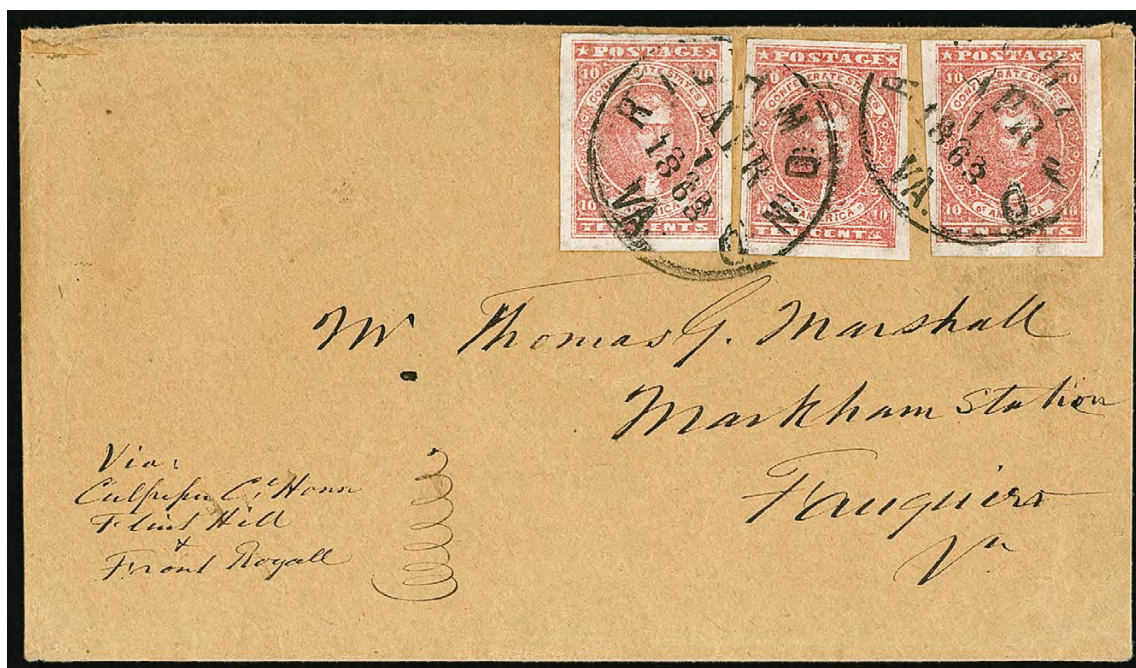 ★POSTAGE★
10 CONFEDERATE STATES 10
10 OF AMERICA 10
TEN CENTS
★POSTAGE★
10 CONFEDERATE STATES 10
OF AMERICA 10
TEN CENTS
★POSTAGE★
10 CONFEDERATE STATES 10
10 OF AMERICA 10
TEN CENTS
RICHMOND
APR
1
1863
VA.
RICHMOND
APR
1
1863
VA.
Mr Thomas G. Marshall
Markham Station
Fauquier
Va
Via:
Culpeper Ct. House
Flint Hill
+
Front Royall